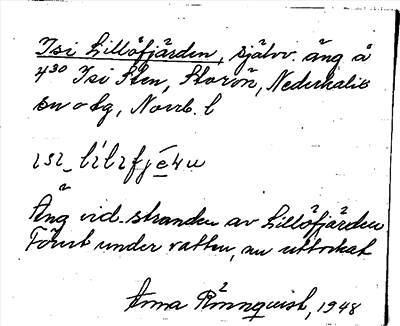 Isi Lillöfjärden, självv. äng å
4³⁰ Isi Sten, Storön, Nederkalix
sn o lg, Norrb. l
ɪsɪ_
Äng vid stranden av Lillöfjärden
Förut under vatten, nu uttorkat
Anna Rönnquist, 1948